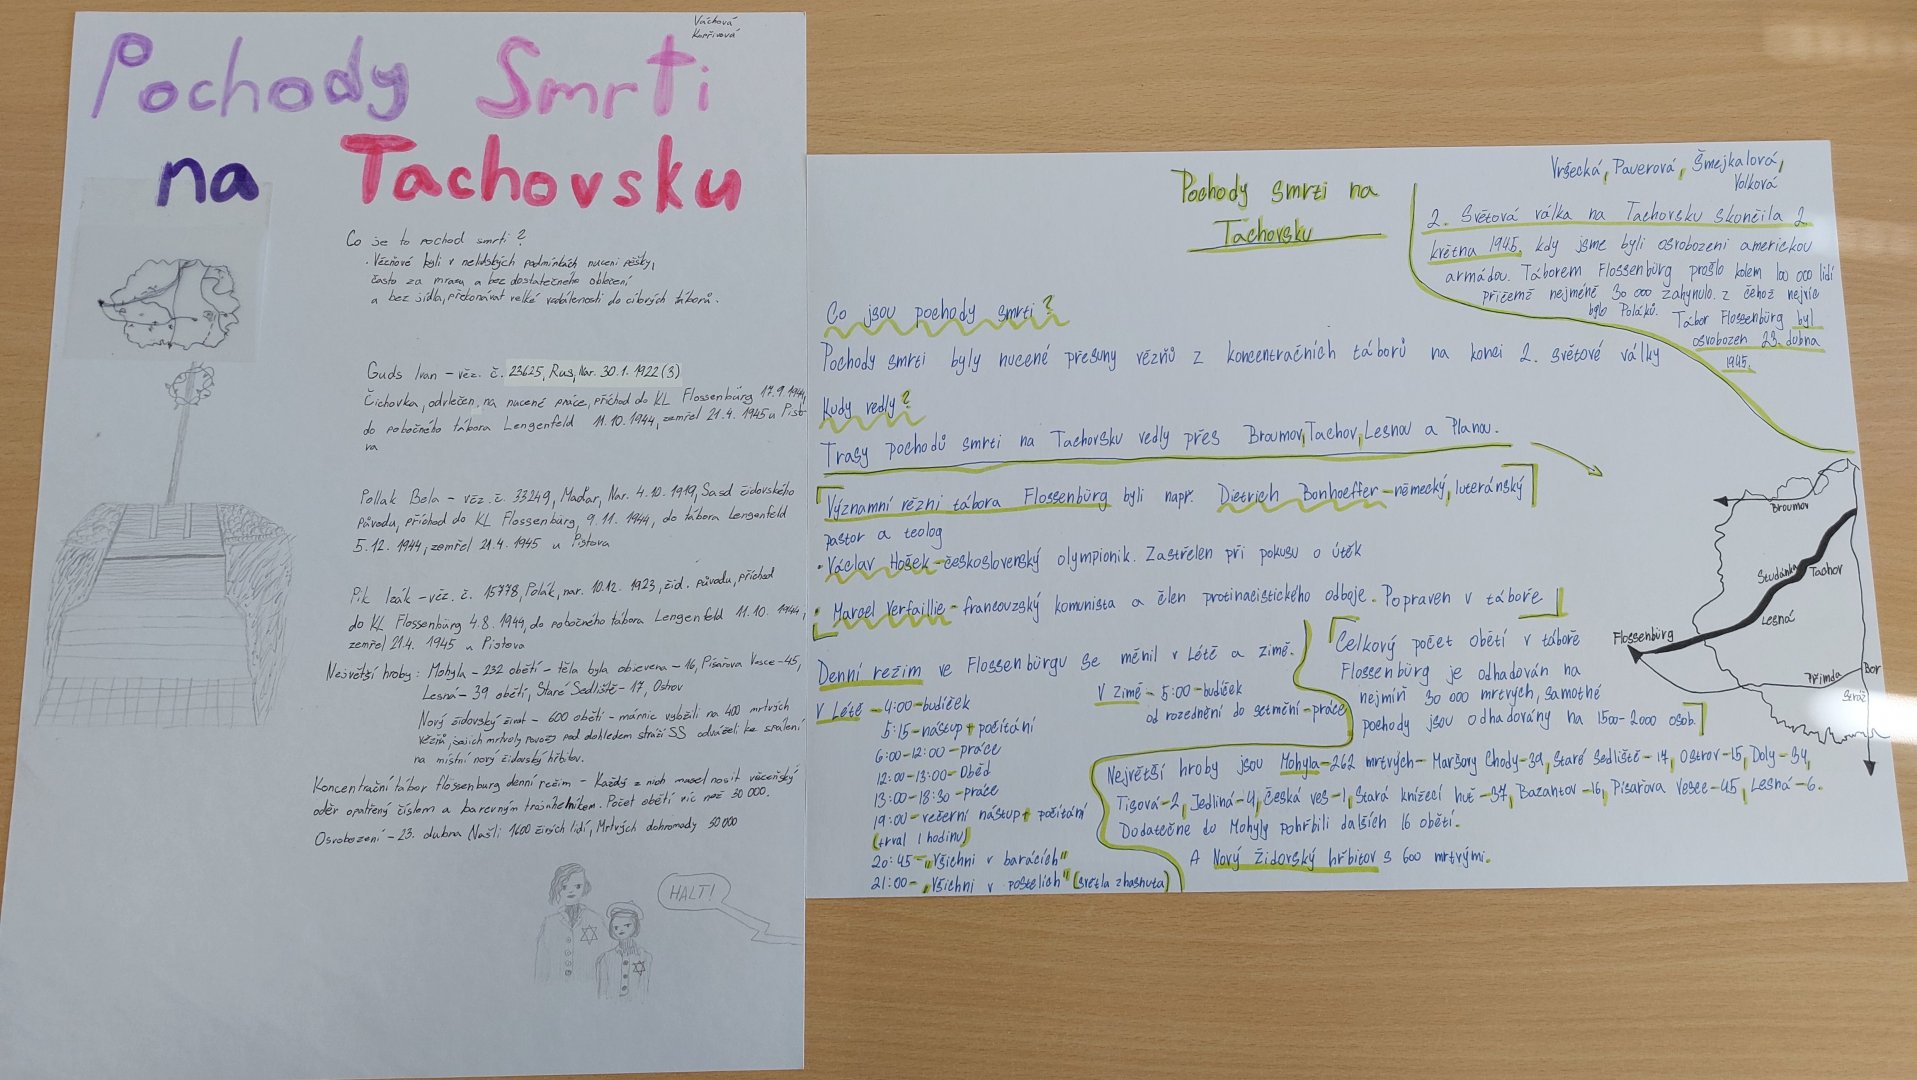 Váchová
Kopřivová
Pochody Smrti
na Tachovsku
Co je to pochod smrti?
• Vězňové byli v nelidských podmínkách nuceni pěšky,
často za mrazu a bez dostatečného oblečení
a bez jídla, překonávat velké vzdálenosti do cílových táborů.
Guds Ivan - věz. č. 23625, Rus, Nar. 30.1.1922 (3)
Čichovka, odvlečen na nucené práce, příchod do KL Flossenbürg 17.9.1944,
do pobočného tábora Lengenfeld 11.10.1944, zemřel 21.4.1945 u Pisto
va
Pollak Bela - věz. č. 33249, Maďar, Nar. 4.10.1919, Sasd židovského
původu, příchod do KL Flossenbürg, 9.11.1944, do tábora Lengenfeld
5.12.1944, zemřel 21.4.1945 u Pistova
Pik Izák - věz. č. 15778, Polák, nar. 10.12.1923, žid. původu, příchod
do KL Flossenbürg 4.8.1944, do pobočného tábora Lengenfeld 11.10.1944,
zemřel 21.4.1945 u Pistova
Největší hroby: Mohyla - 232 obětí - těla byla objevena - 16, Písařova Vesce - 45,
Lesná - 39 obětí, Staré Sedliště - 17, Ostrov
Nový židovský - 600 obětí - márnic vyložili na 400 mrtvých
vězňů, jejich mrtvoly pod dohledem stráží SS odváželi ke spálení
na místní nový židovský hřbitov.
Koncentrační tábor flossenburg denní režim - Každý z nich musel nosit vězeňský
oděv opatřený číslem a barevným trojúhelníkem. Počet obětí víc než 30 000.
Osvobození - 23. dubna Našli 1600 živých lidí, Mrtvých dohromady 30 000
HALT!
Vršecká, Paverová, Šmejkalová,
Volková
Pochody smrti na
Tachovsku
2. Světová válka na Tachovsku skončila 2.
května 1945, kdy jsme byli osvobozeni americkou
armádou. Táborem Flossenbürg prošlo kolem 100 000 lidí
přičemž nejméně 30 000 zahynulo. z čehož nejvíc
bylo Poláků. Tábor Flossenbürg byl
osvobozen 23. dubna
1945.
Co jsou pochody smrti?
Pochody smrti byly nucené přesuny vězňů z koncentračních táborů na konci 2. světové války
Kudy vedly?
Trasy pochodů smrti na Tachovsku vedly přes Broumov, Tachov, Lesnou a Planou.
Významní vězni tábora Flossenbürg byli např. Dietrich Bonhoeffer - německý, luteránský
pastor a teolog
• Václav Hošek - československý olympionik. Zastřelen při pokusu o útěk
• Marcel Verfaillie - francouzský komunista a člen protinacistického odboje. Popraven v táboře
Denní režim ve Flossenbürgu se měnil v Létě a zimě.
V Létě - 4:00 - budíček
5:15 - nástup + počítání
6:00-12:00 - práce
12:00-13:00 - Oběd
13:00-18:30 - práce
19:00 - večerní nástup + počítání
(trval 1 hodinu)
20:45 - "Všichni v barácích"
21:00 - "Všichni v postelích" (světla zhasnuta)
V Zimě - 5:00 - budíček
od rozednění do setmění - práce
Celkový počet obětí v táboře
Flossenbürg je odhadován na
nejmíň 30 000 mrtvých, samotné
pochody jsou odhadovány na 1500-2000 osob.
Největší hroby jsou Mohyla - 262 mrtvých - Maršovy Chody - 39, Staré Sedliště - 17, Ostrov - 15, Doly - 34,
Tisová - 2, Jedlina - 4, Česká ves - 1, Stará knížecí huť - 37, Bazantov - 16, Písařova Vesce - 45, Lesná - 6.
Dodatečně do Mohyly pohřbili dalších 16 obětí.
A Nový Židovský hřbitov s 600 mrtvými.
Broumov
Studánka
Tachov
Lesná
Flossenbürg
Přimda
Bor
Stráž